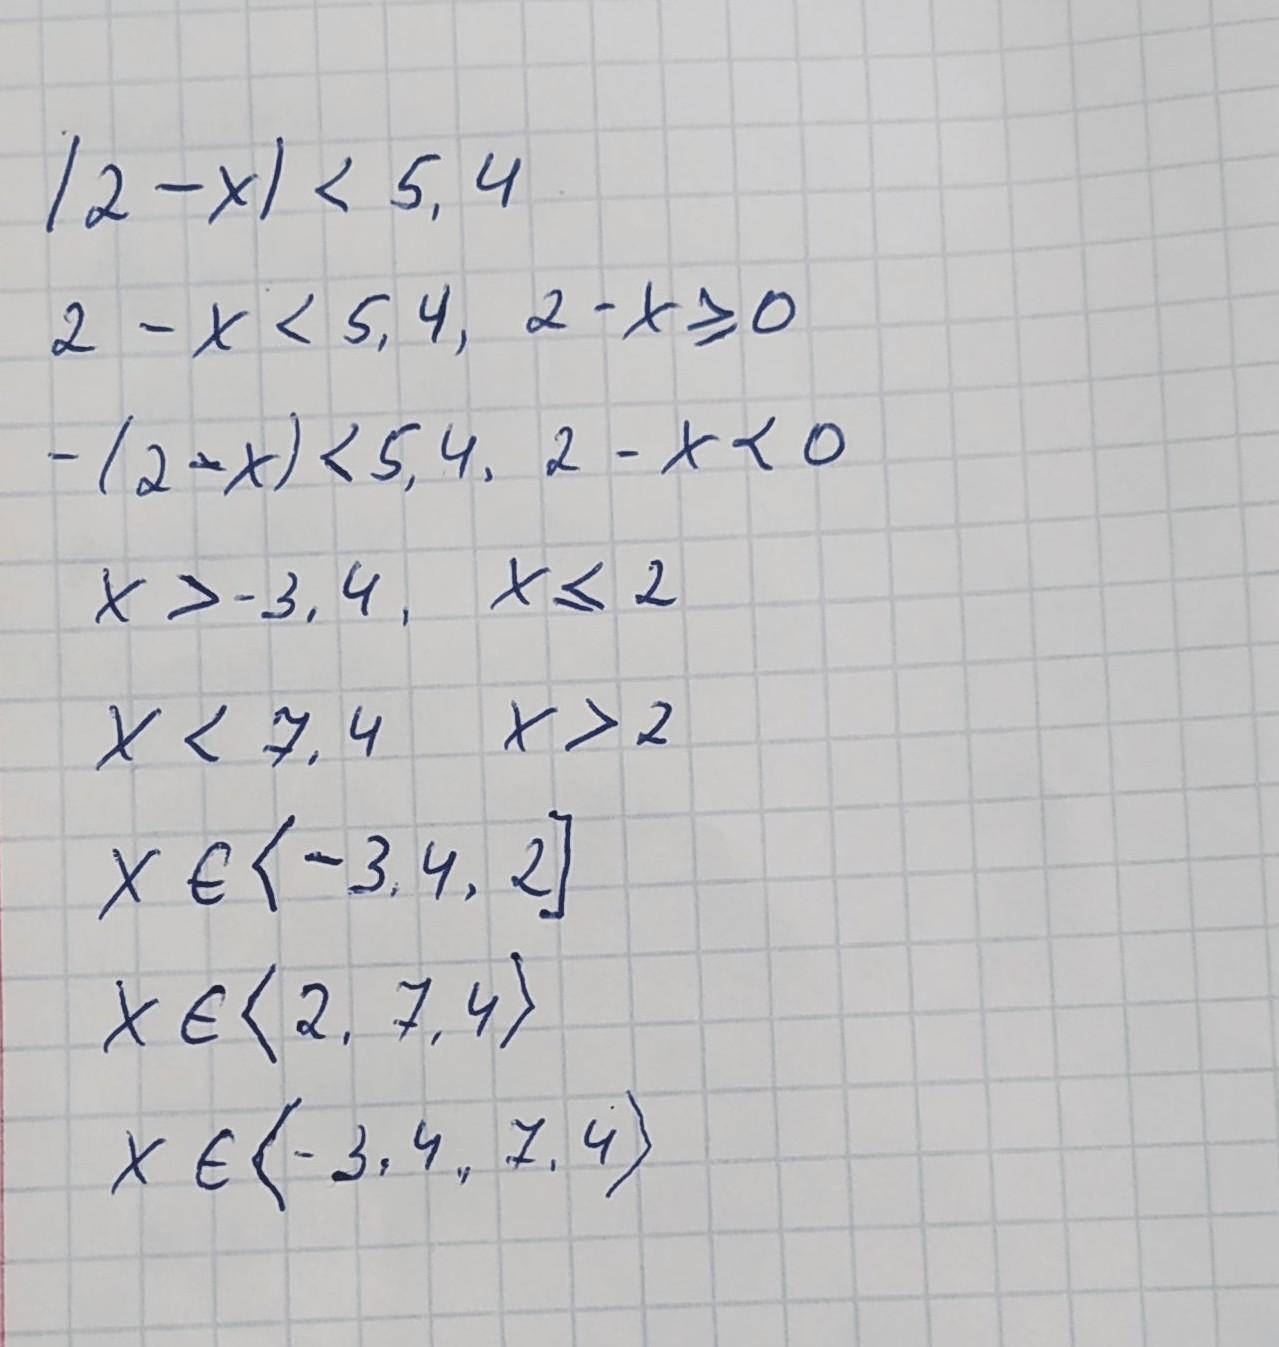 |2-x| < 5,4
2 - x < 5,4, 2 - x ⩾ 0
-(2-x) < 5,4, 2 - x < 0
x > -3,4, x ≤ 2
x < 7,4 x > 2
x ∈ ⟨-3,4, 2]
x ∈ ⟨2, 7,4⟩
x ∈ ⟨-3,4,, 7,4⟩